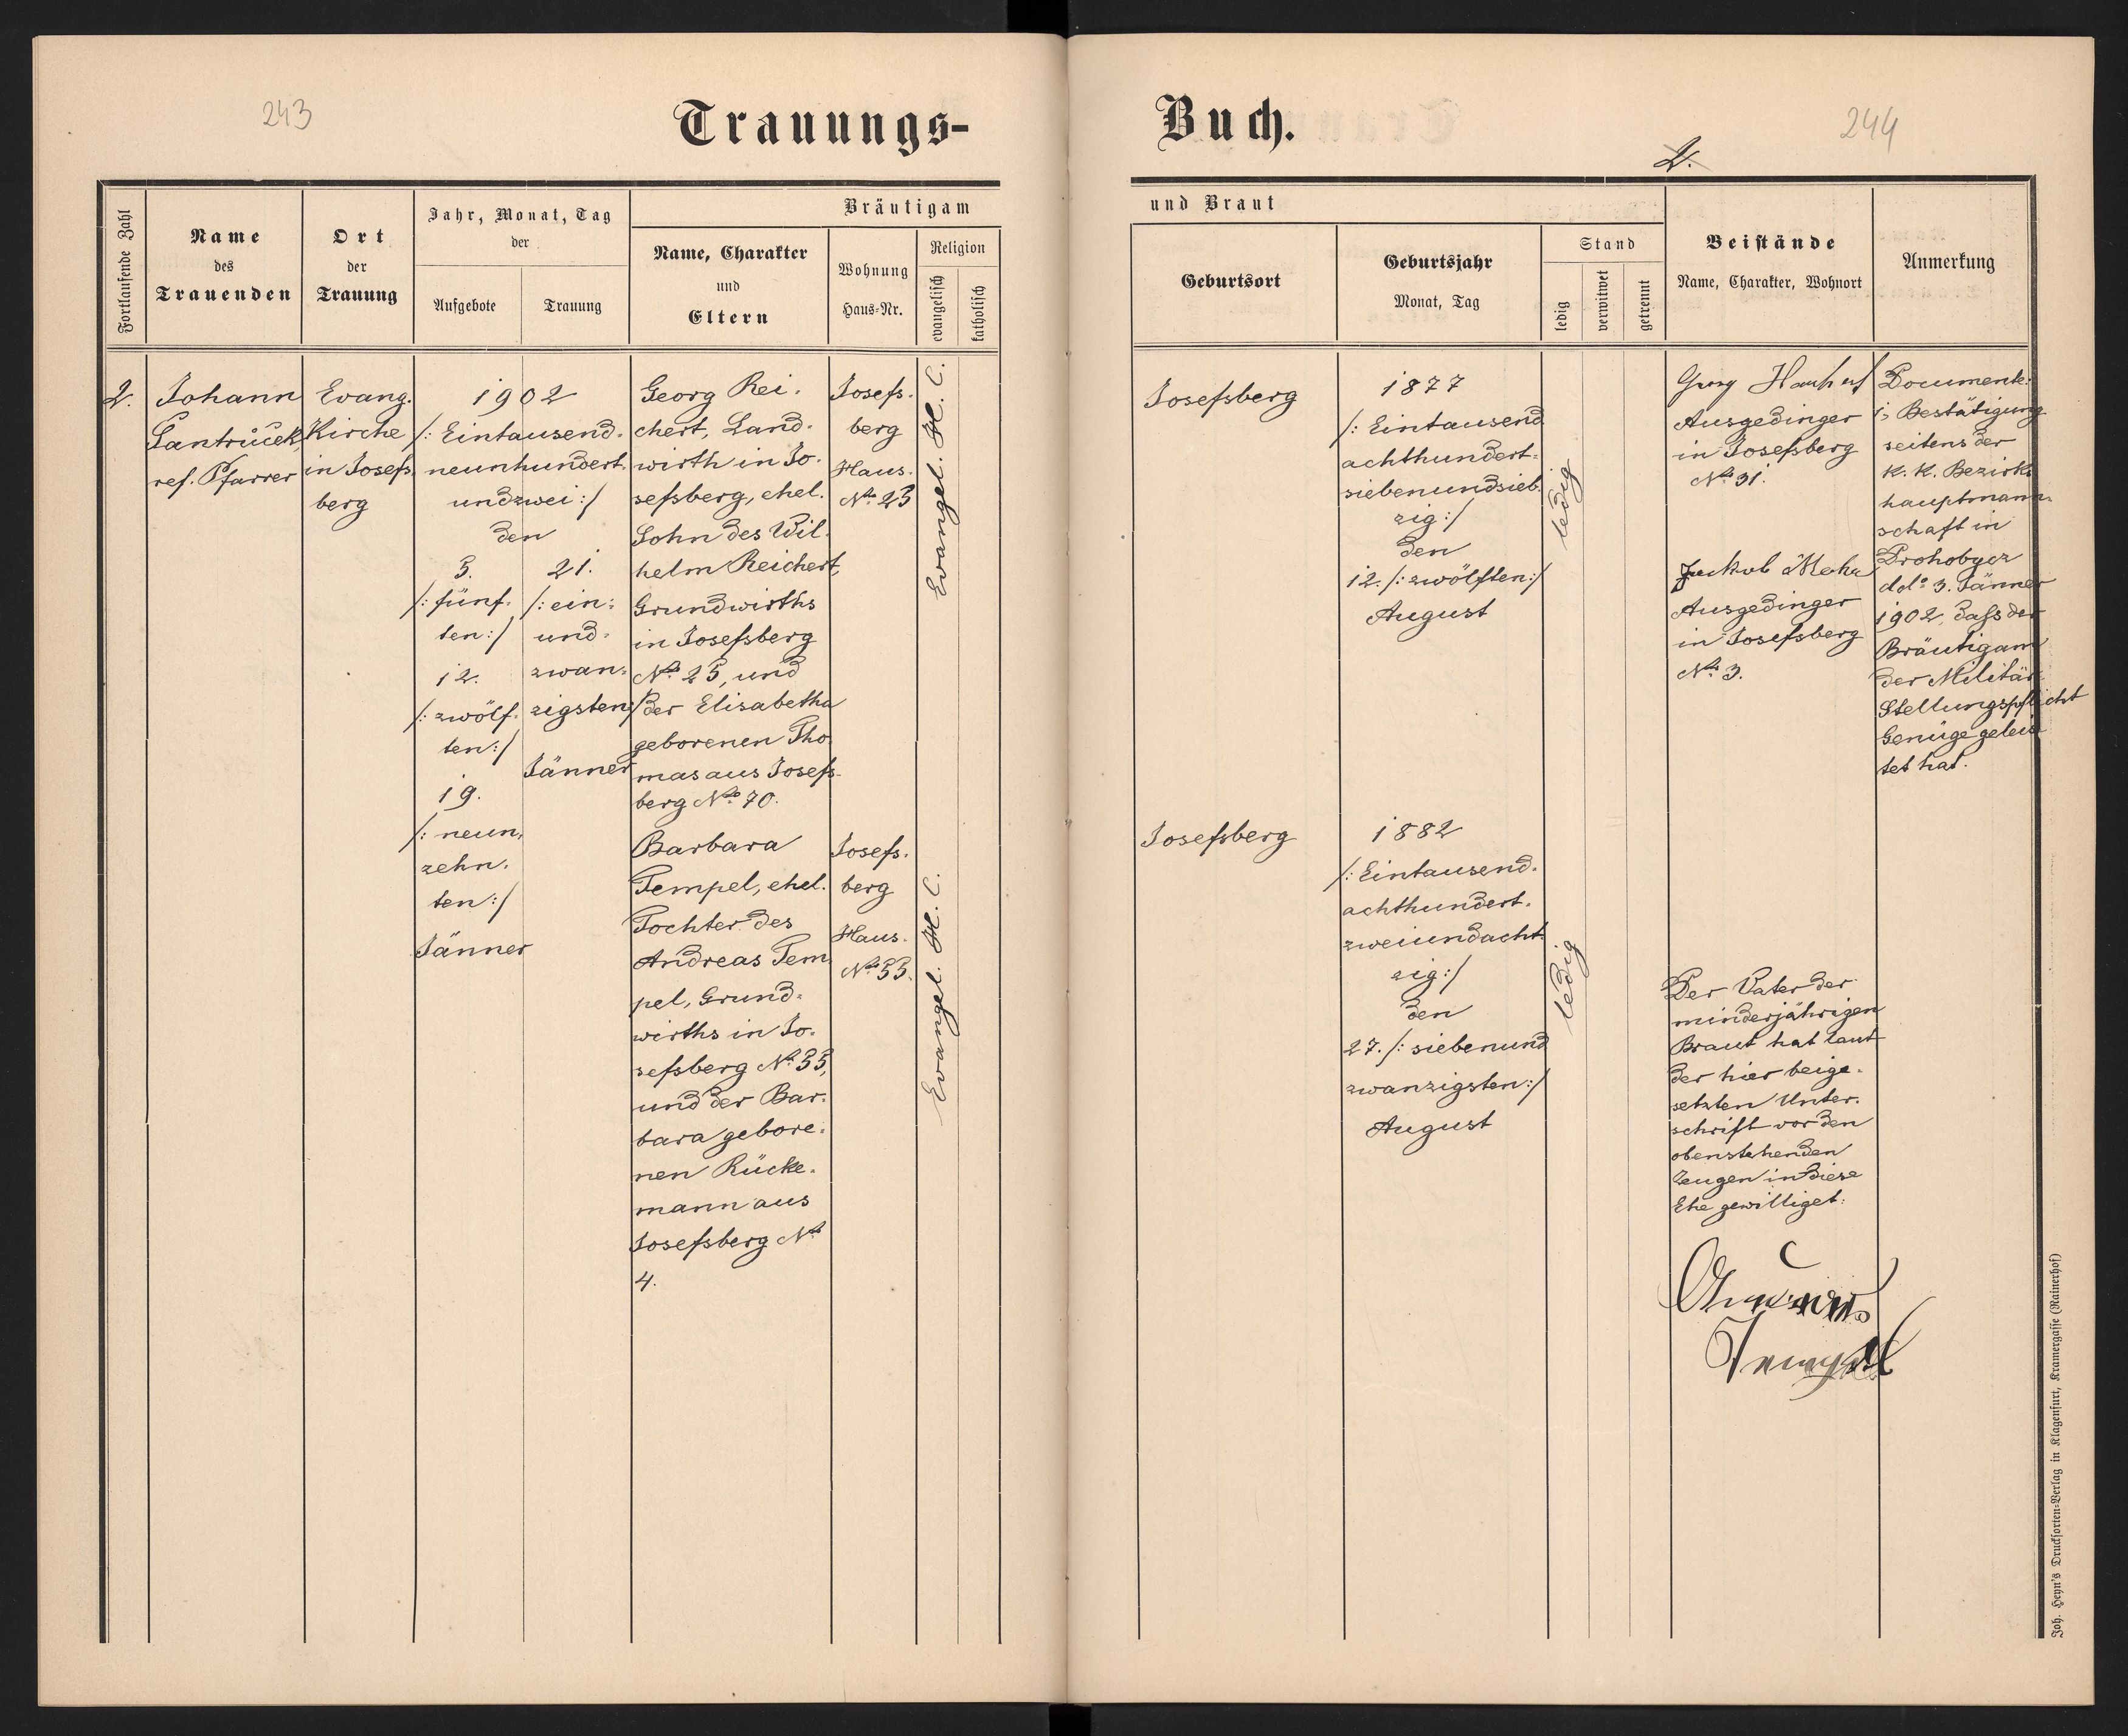 243
Trauungs-
Buch.
244
2.
Fortlaufende Zahl
Name
des
Trauenden
Ort
der
Trauung
Jahr, Monat, Tag
der
Aufgebote
Trauung
Bräutigam
Name, Charakter
und
Eltern
Wohnung
Haus-Nr.
Religion
evangelisch
katholisch
und Braut
Geburtsort
Geburtsjahr
Monat, Tag
Stand
ledig
verwitwet
getrennt
Beistände
Name, Charakter, Wohnort
Anmerkung
2.
Johann
Lantrůček,
ref. Pfarrer
Evang.
Kirche
in Josefs-
berg
1902
/: Eintausend-
neunhundert-
undzwei :/
den
5.
/: fünf-
ten :/
12.
/: zwölf-
ten :/
19.
/: neun-
zehn-
ten :/
Jänner
21.
/: ein-
und-
zwan-
zigsten :/
Jänner
Georg Rei-
chert, Land-
wirth in Jo-
sefsberg, ehel.
Sohn des Wil-
helm Reichert,
Grundwirths
in Josefsberg
No 25, und
der Elisabetha
geborenen Tho-
mas aus Josefs-
berg No 70.
Josefs-
berg
Haus-
No 25
Evangel. H. C.
Barbara
Tempel, ehel.
Tochter des
Andreas Tem-
pel, Grund-
wirths in Jo-
sefsberg No 55,
und der Bar-
bara gebore-
nen Rücke-
mann aus
Josefsberg No
4.
Josefs-
berg
Haus-
No 55.
Evangel. H. C.
Josefsberg
1877
/: Eintausend
achthundert-
siebenundsieb-
zig :/
den
12. /: zwölften :/
August
ledig
Georg
Ausgedinger
in Josefsberg
No 31.
Jackob
Ausgedinger
in Josefsberg
No 3.
Documente:
1, Bestätigung
seitens der
k. k. Bezirks
hauptmann-
schaft in
Drohobycz
ddo 3. Jänner
1902, dafs der
Bräutigam
der Militär-
Stellungspflicht
Genüge geleis-
tet hat.
Josefsberg
1882
/: Eintausend-
achthundert-
zweiundacht-
zig :/
den
27. /: siebenund
zwanzigsten :/
August
ledig
Der Vater der
minderjährigen
Braut hat laut
der hier beige-
setzten Unter-
schrift vor den
obenstehenden
Zeugen in diese
Ehe gewilliget:
Andreas
Tempel
Joh. Heyn's Drucksorten-Verlag in Klagenfurt, Kramergasse (Rainerhof)